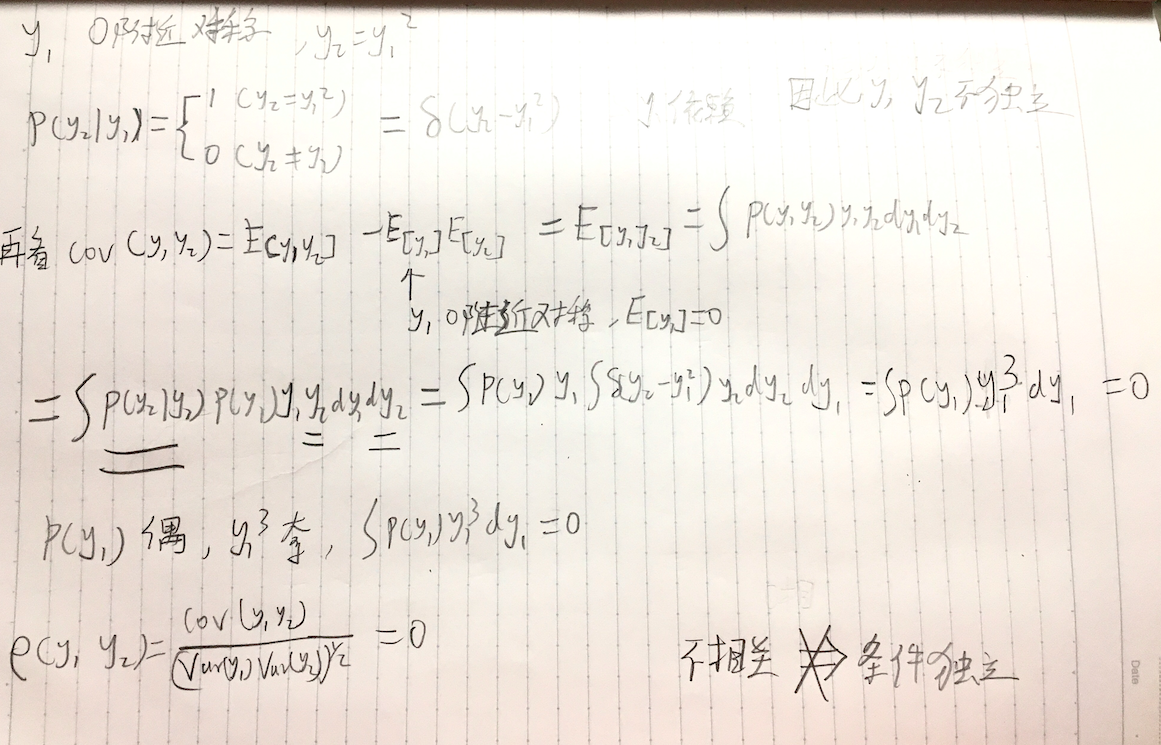 y₁ 0附近对称, y₂=y₁²
p(y₂|y₁)={1 (y₂=y₁²) = δ(y₂-y₁²) y₁依赖 因此 y₁ y₂不独立
0 (y₂≠y₂)
再看 cov(y₁y₂)=E[y₁y₂] -E[y₁]E[y₂] = E[y₁y₂] = ∫ p(y₁y₂)y₁y₂dy₁dy₂
↑
y₁ 0附近对称, E[y₁]=0
=∫p(y₂|y₂)p(y₁)y₁y₂dy₁dy₂ = ∫p(y₁) y₁ ∫δ(y₂-y₁²)y₂dy₂ dy₁ = ∫p(y₁)y₁³dy₁ = 0
p(y₁) 偶, y₁³ 奇, ∫p(y₁)y₁³dy₁ = 0
ρ(y₁ y₂)= cov(y₁y₂) / (Var(y₁)Var(y₂))^½ = 0 不相关 ⇏ 条件独立
Date